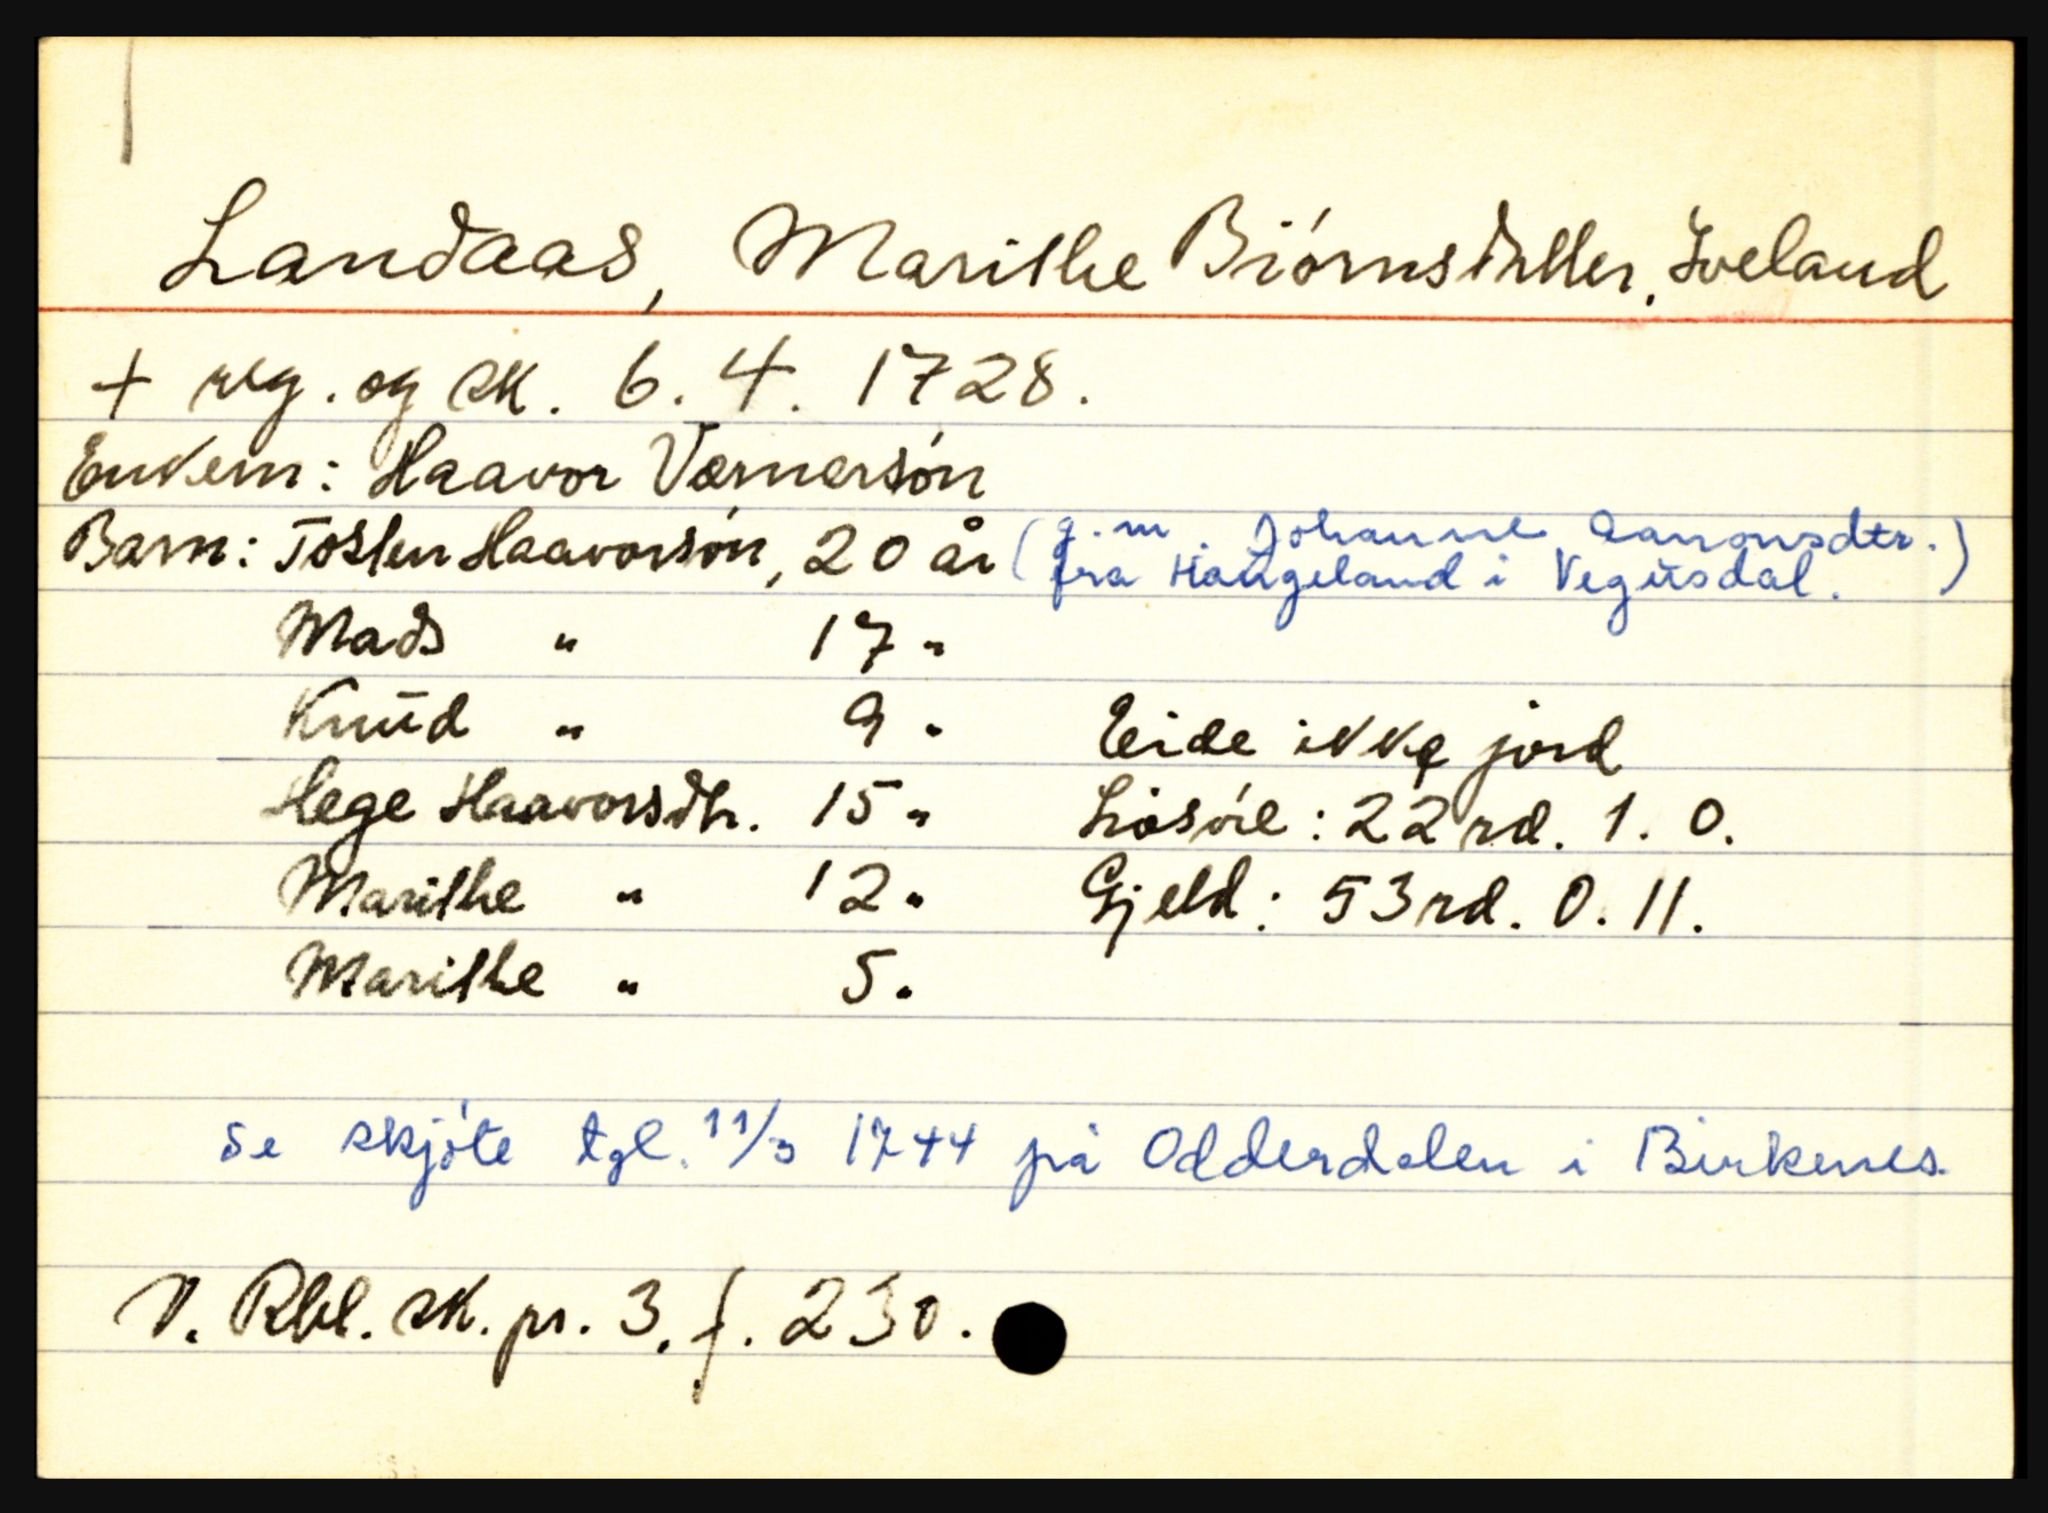 Landaas, Marithe Biørnsdatter, Iveland
+ reg. og sk. 6. 4. 1728.
Enkem: Haavor Værnersøn
Barn: Tosten Haavorsøn, 20 år (g.m. Johanne Aanonsdtr.
fra Haugeland i Vegusdal.)
Mads " 17 "
Knud " 9 "
Eide ikke jord
Hege Haavorsdtr. 15 "
Løsøre: 22 rd. 1. 0.
Marithe " 12 "
Gjeld: 53 rd. 0. 11.
Marithe " 5 "
Se skjøte tgl. 11/3 1744 på Odderdalen i Birkenes
N. Rbl. sk. pr. 3. f. 230.